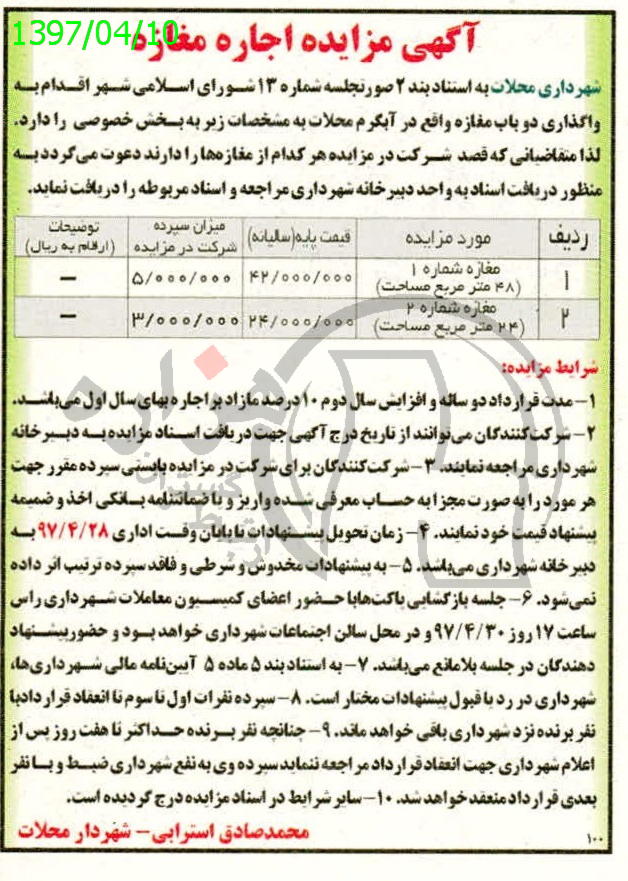 1397/04/10
آگهی مزایده اجاره مغازه
شهرداری محلات به استناد بند ۲ صورتجلسه شماره ۱۳ شورای اسلامی شهر اقدام به
واگذاری دو باب مغازه واقع در آبگرم محلات به مشخصات زیر به بخش خصوصی را دارد.
لذا متقاضیانی که قصد شرکت در مزایده هر کدام از مغازه‌ها را دارند دعوت می‌گردد به
منظور دریافت اسناد به واحد دبیرخانه شهرداری مراجعه و اسناد مربوطه را دریافت نماید.
ردیف مورد مزایده قیمت پایه(سالیانه) میزان سپرده شرکت در مزایده توضیحات (ارقام به ریال)
۱ مغازه شماره ۱ (۴۸ متر مربع مساحت) ۴۲/۰۰۰/۰۰۰ ۵/۰۰۰/۰۰۰ –
۲ مغازه شماره ۲ (۲۴ متر مربع مساحت) ۲۴/۰۰۰/۰۰۰ ۳/۰۰۰/۰۰۰ –
شرایط مزایده:
۱- مدت قرارداد دو ساله و افزایش سال دوم ۱۰ درصد مازاد بر اجاره بهای سال اول می‌باشد.
۲- شرکت‌کنندگان می‌توانند از تاریخ درج آگهی جهت دریافت اسناد مزایده به دبیرخانه
شهرداری مراجعه نمایند. ۳- شرکت‌کنندگان برای شرکت در مزایده بایستی سپرده مقرر جهت
هر مورد را به صورت مجزا به حساب معرفی شده واریز و یا ضمانتنامه بانکی اخذ و ضمیمه
پیشنهاد قیمت خود نمایند. ۴- زمان تحویل پیشنهادات تا پایان وقت اداری ۹۷/۴/۲۸ به
دبیرخانه شهرداری می‌باشد. ۵- به پیشنهادات مخدوش و شرطی و فاقد سپرده ترتیب اثر داده
نمی‌شود. ۶- جلسه بازگشایی پاکت‌ها با حضور اعضای کمیسیون معاملات شهرداری راس
ساعت ۱۷ روز ۹۷/۴/۳۰ و در محل سالن اجتماعات شهرداری خواهد بود و حضور پیشنهاد
دهندگان در جلسه بلامانع می‌باشد. ۷- به استناد بند ۵ ماده ۵ آیین‌نامه مالی شهرداری‌ها،
شهرداری در رد یا قبول پیشنهادات مختار است. ۸- سپرده نفرات اول تا سوم تا انعقاد قرارداد با
نفر برنده نزد شهرداری باقی خواهد ماند. ۹- چنانچه نفر برنده حداکثر تا هفت روز پس از
اعلام شهرداری جهت انعقاد قرارداد مراجعه ننماید سپرده وی به نفع شهرداری ضبط و با نفر
بعدی قرارداد منعقد خواهد شد. ۱۰- سایر شرایط در اسناد مزایده درج گردیده است.
محمدصادق استرابی- شهردار محلات
۱۰۰